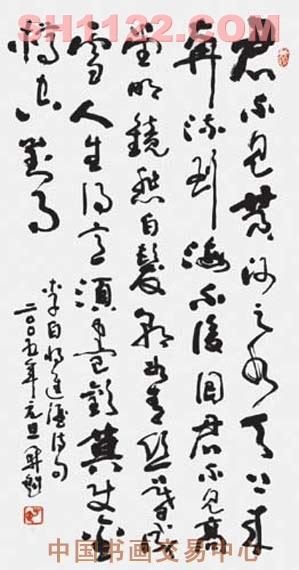 SH1122.COM
君不見黄河之水天上来
奔流到海不復回君不見高
堂明鏡悲白髮朝如青丝暮成
雪人生得意須尽歡莫使金
樽空對月
李白將進酒诗句
二〇〇五年元旦
中国书画交易中心